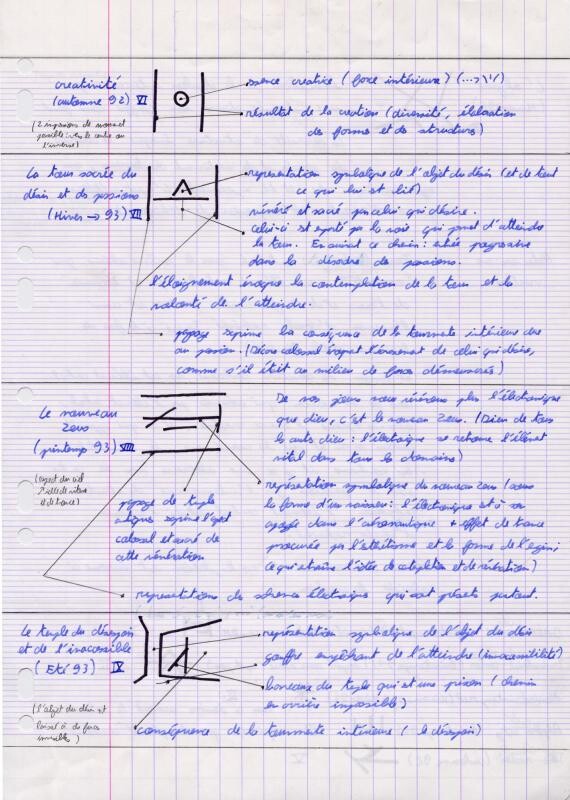 creativité
(automne 92) VI
(2 impressions de mouvement
possible: vers le centre ou
l'inverse)
essence creatrice (force intérieure)
résultat de la creation (diversité, élaboration
des formes et des structures)
La tour sacrée du
désir et des passions
(Hiver → 93) VII
representation symbolique de l'objet du désir (et de tout
ce qui lui est lié)
vénéré et sacré par celui qui désire.
Celui-ci est par la voie qui permet d'atteindre
la tour. En suivant ce chemin: progressive
dans le désordre de passions.
l'éloignement évoque la contemplation de la tour et la
volonté de l'atteindre.
paysage exprime la conséquence de la tourmente intérieure due
au passion. (Décor colossal évoquant l'écrasement de celui qui désire,
comme s'il était au milieu de forces démesurées)
Le nouveau
zeus
(printemps 93) VIII
De nos jours nous vénérons plus l'électronique
que dieu, c'est le nouveau Zeus. (Dieu de tous
les autres dieux: l'électronique se retrouve l'élément
vital dans tous les domaines)
représentation symbolique du nouveau zeus (sous
la forme d'un vaisseau: l'électronique est à son
apogée dans l'aéronautique + effet de trance
procurée par l'esthétisme et la forme de l'engin,
ce qui entraîne l'idée de contemplation et de vénération)
paysage de temple
antique exprime l'aspect
colossal et sacré de
cette vénération
representations de schemas électroniques qui sont présents partout.
Le temple du désespoir
et de l'inaccessible
(Eté 93) IV
(l'objet du désir est
à de forces
invisibles)
représentation symbolique de l'objet du désir
gouffre empêchant de l'atteindre (inaccessibilité)
barreaux du temple qui est une prison (chemin
en arrière impossible)
conséquence de la tourmente intérieure (le désespoir)